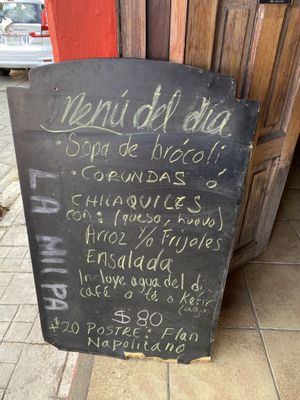 Menú del día
• Sopa de brócoli
• CORUNDAS ó
CHILAQUILES
con: (queso, huevo)
Arroz y/o Frijoles
Ensalada
Incluye agua del dí
café o té o Kefir
$80
$20 POSTRE: Flan
Napolitano
LA MILPA